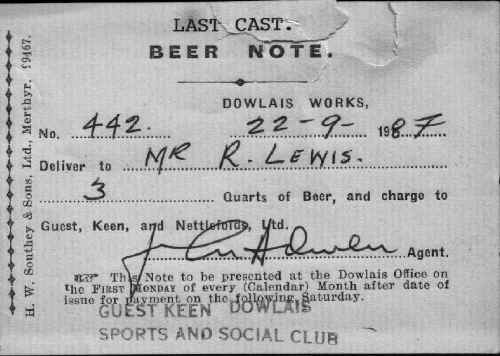 LAST CAST.
BEER NOTE.
DOWLAIS WORKS,
No. 442. 22-9-1987
Deliver to MR R. LEWIS.
3 Quarts of Beer, and charge to
Guest, Keen, and Nettlefolds, Ltd.
Owen Agent.
This Note to be presented at the Dowlais Office on
the FIRST MONDAY of every (Calendar) Month after date of
issue for payment on the following Saturday.
GUEST KEEN DOWLAIS
SPORTS AND SOCIAL CLUB
H. W. Southey & Sons, Ltd., Merthyr. 19467.